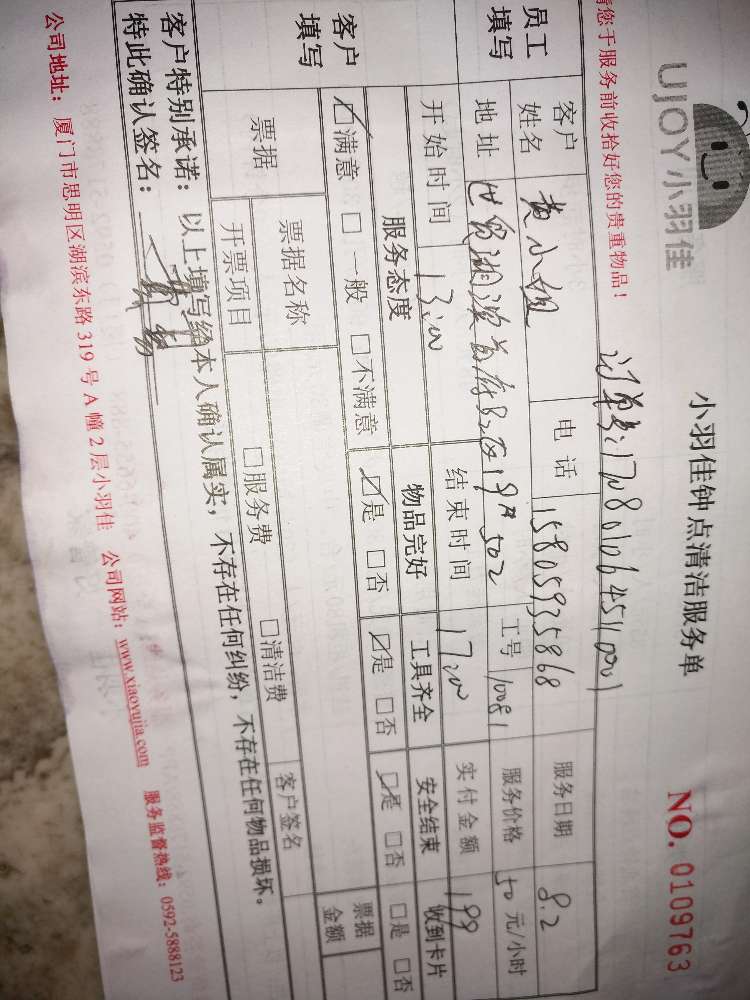 UJOY小羽佳
小羽佳钟点清洁服务单
NO. 0109763
请您于服务前收拾好您的贵重物品！
订单号：1708010645110001
员工填写
客户姓名 黄小姐 电话 15805935868 服务日期 8.2
地址 世贸湖滨首府 502 工号 10081 服务价格 50 元/小时
开始时间 13:00 结束时间 17:00 实付金额 199
客户填写
服务态度 物品完好 工具齐全 安全结束 收到卡片
☑满意 □一般 □不满意 ☑是 □否 ☑是 □否 ☑是 □否 □是 □否
票据 票据名称 □服务费 □清洁费 票据金额
开票项目 客户签名
客户特别承诺：以上填写经本人确认属实，不存在任何纠纷，不存在任何物品损坏。
特此确认签名：
公司地址：厦门市思明区湖滨东路319号A幢2层小羽佳 公司网站：www.xiaoyujia.com 服务监督热线：0592-5888123